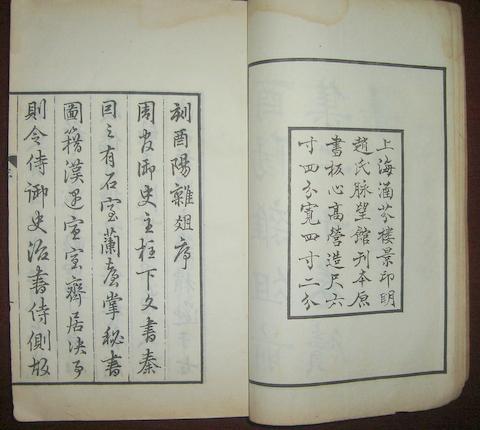 上海涵芬樓景印明
趙氏脈望館刊本原
書板心高營造尺六
寸四分寬四寸二分
刻酉陽雜俎序
周官御史主柱下文書秦
因之有石室蘭臺掌秘書
圖籍漢宣室齊居決事
則令侍御史治書侍側故